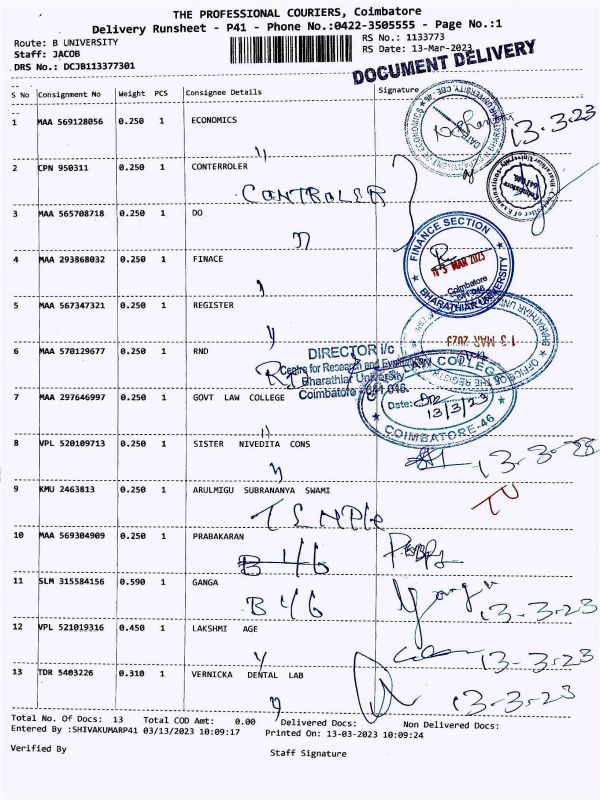 THE PROFESSIONAL COURIERS, Coimbatore
Delivery Runsheet - P41 - Phone No.:0422-3505555 - Page No.:1
Route: B UNIVERSITY
RS No.: 1133773
Staff: JACOB
RS Date: 13-Mar-2023
DRS No.: DCJB113377301
DOCUMENT DELIVERY
S No Consignment No Weight PCS Consignee Details Signature
1 MAA 569128056 0.250 1 ECONOMICS
13.3.23
2 CPN 950311 0.250 1 CONTERROLER
CONTROLER
3 MAA 565708718 0.250 1 DO
FINANCE SECTION
13 MAR 2023
Coimbatore
641 046
BHARATHIAR UNIVERSITY
4 MAA 293868032 0.250 1 FINACE
5 MAA 567347321 0.250 1 REGISTER
13 MAR 2023
6 MAA 570129677 0.250 1 RND
DIRECTOR i/c
Centre for Research and Evaluation
Bharathiar University
Coimbatore - 641 046.
7 MAA 297646997 0.250 1 GOVT LAW COLLEGE
LAW COLLEGE
Date:
13/3/23
COIMBATORE-46
8 VPL 520109713 0.250 1 SISTER NIVEDITA CONS
13-3-23
9 KMU 2463813 0.250 1 ARULMIGU SUBRANANYA SWAMI
10 MAA 569304909 0.250 1 PRABAKARAN
B 46
11 SLM 315584156 0.590 1 GANGA
B 46
13-3-23
12 VPL 521019316 0.450 1 LAKSHMI AGE
13-3-23
13 TDR 5403226 0.310 1 VERNICKA DENTAL LAB
13-3-23
Total No. Of Docs: 13 Total COD Amt: 0.00 Delivered Docs: Non Delivered Docs:
Entered By :SHIVAKUMARP41 03/13/2023 10:09:17 Printed On: 13-03-2023 10:09:24
Verified By
Staff Signature